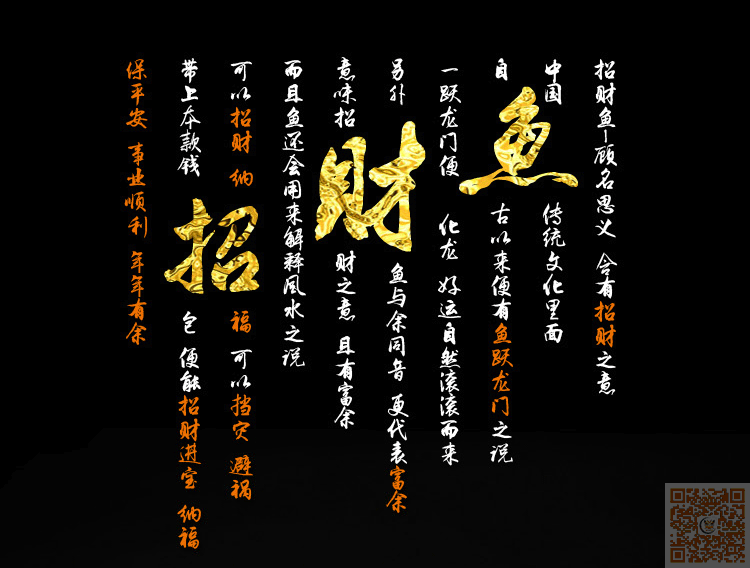 招财鱼
招财鱼-顾名思义 含有招财之意
中国 传统文化里面
自 古以来便有鱼跃龙门之说
一跃龙门便 化龙 好运自然滚滚而来
另外 鱼与余同音 更代表富余
意味招 财之意 且有富余
而且鱼还会用来解释风水之说
可以招财 纳 福 可以挡灾 避祸
带上本款钱 包 便能招财进宝 纳福
保平安 事业顺利 年年有余